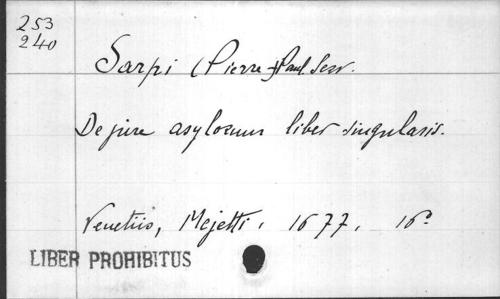 253
240
Sarpi (Pierre-Paul Serv.
De jure asylorum liber singularis.
Venetiis, Mejetti, 1677, 16°
LIBER PROHIBITUS